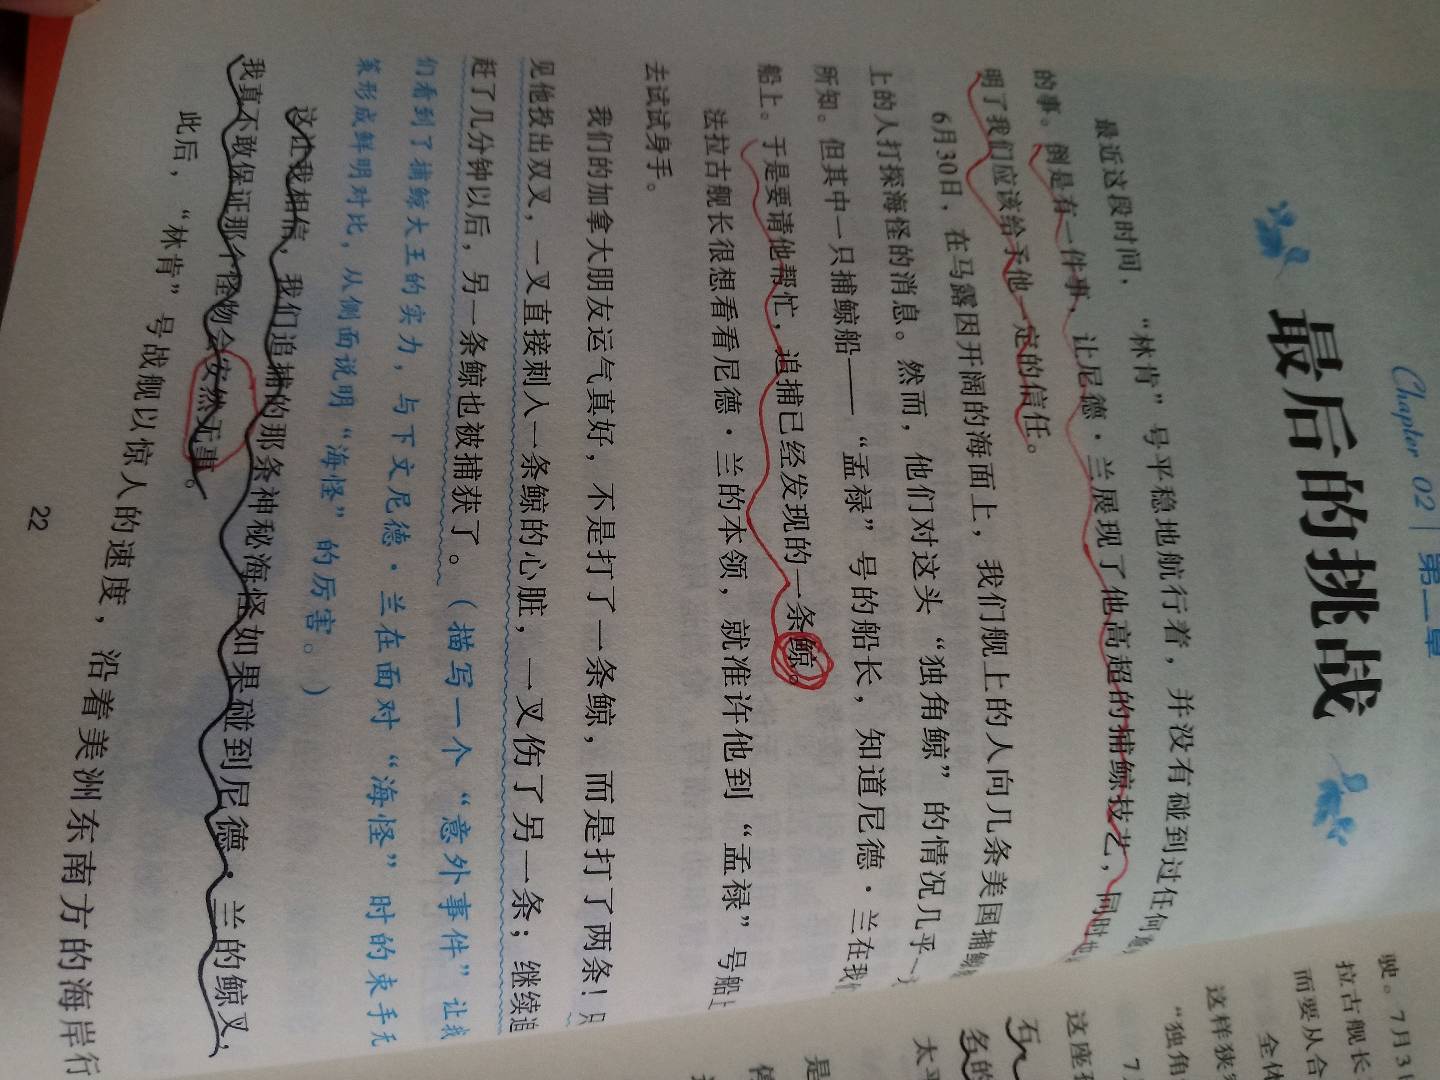 Chapter 02 | 第二章
最后的挑战
最近这段时间，“林肯”号平稳地航行着，并没有碰到过任何
的事。倒是有一件事，让尼德·兰展现了他高超的捕鲸技艺，同时
明了我们应该给予他一定的信任。
6月30日，在马露因开阔的海面上，我们舰上的人向几条美国捕鲸
上的人打探海怪的消息。然而，他们对这头“独角鲸”的情况几乎一
所知。但其中一只捕鲸船——“孟禄”号的船长，知道尼德·兰在我
船上。于是要请他帮忙，追捕已经发现的一条鲸。
法拉古舰长很想看看尼德·兰的本领，就准许他到“孟禄”号船上
去试试身手。
我们的加拿大朋友运气真好，不是打了一条鲸，而是打了两条！只
见他投出双叉，一叉直接刺入一条鲸的心脏，一叉伤了另一条；继续追
赶了几分钟以后，另一条鲸也被捕获了。（描写一个“意外事件”让我
们看到了捕鲸大王的实力，与下文尼德·兰在面对“海怪”时的束手无
策形成鲜明对比，从侧面说明“海怪”的厉害。）
这让我相信，我们追捕的那条神秘海怪如果碰到尼德·兰的鲸叉，
我真不敢保证那个怪物会安然无事。
此后，“林肯”号战舰以惊人的速度，沿着美洲东南方的海岸行
22
驶。7月3日
拉古舰长
而要从合
全体
这样狭
“独角
7
这座
石
名的
太平
是